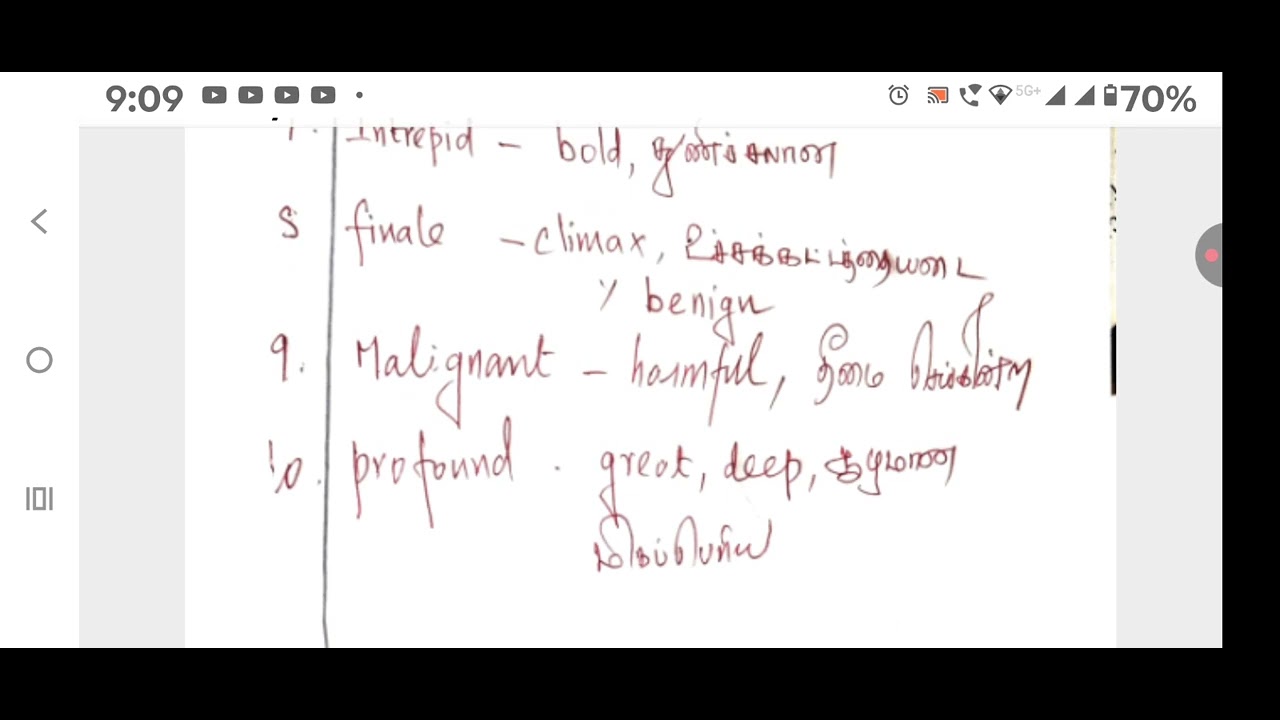 9:09 5G+ 70%
7. Intrepid - bold, துணிச்சலான
8 finale - climax, உச்சக்கட்டத்தையடை
benign
9. Malignant - harmful, தீமை செய்கின்ற
10. profound . great, deep, ஆழமான
மிகப்பெரிய